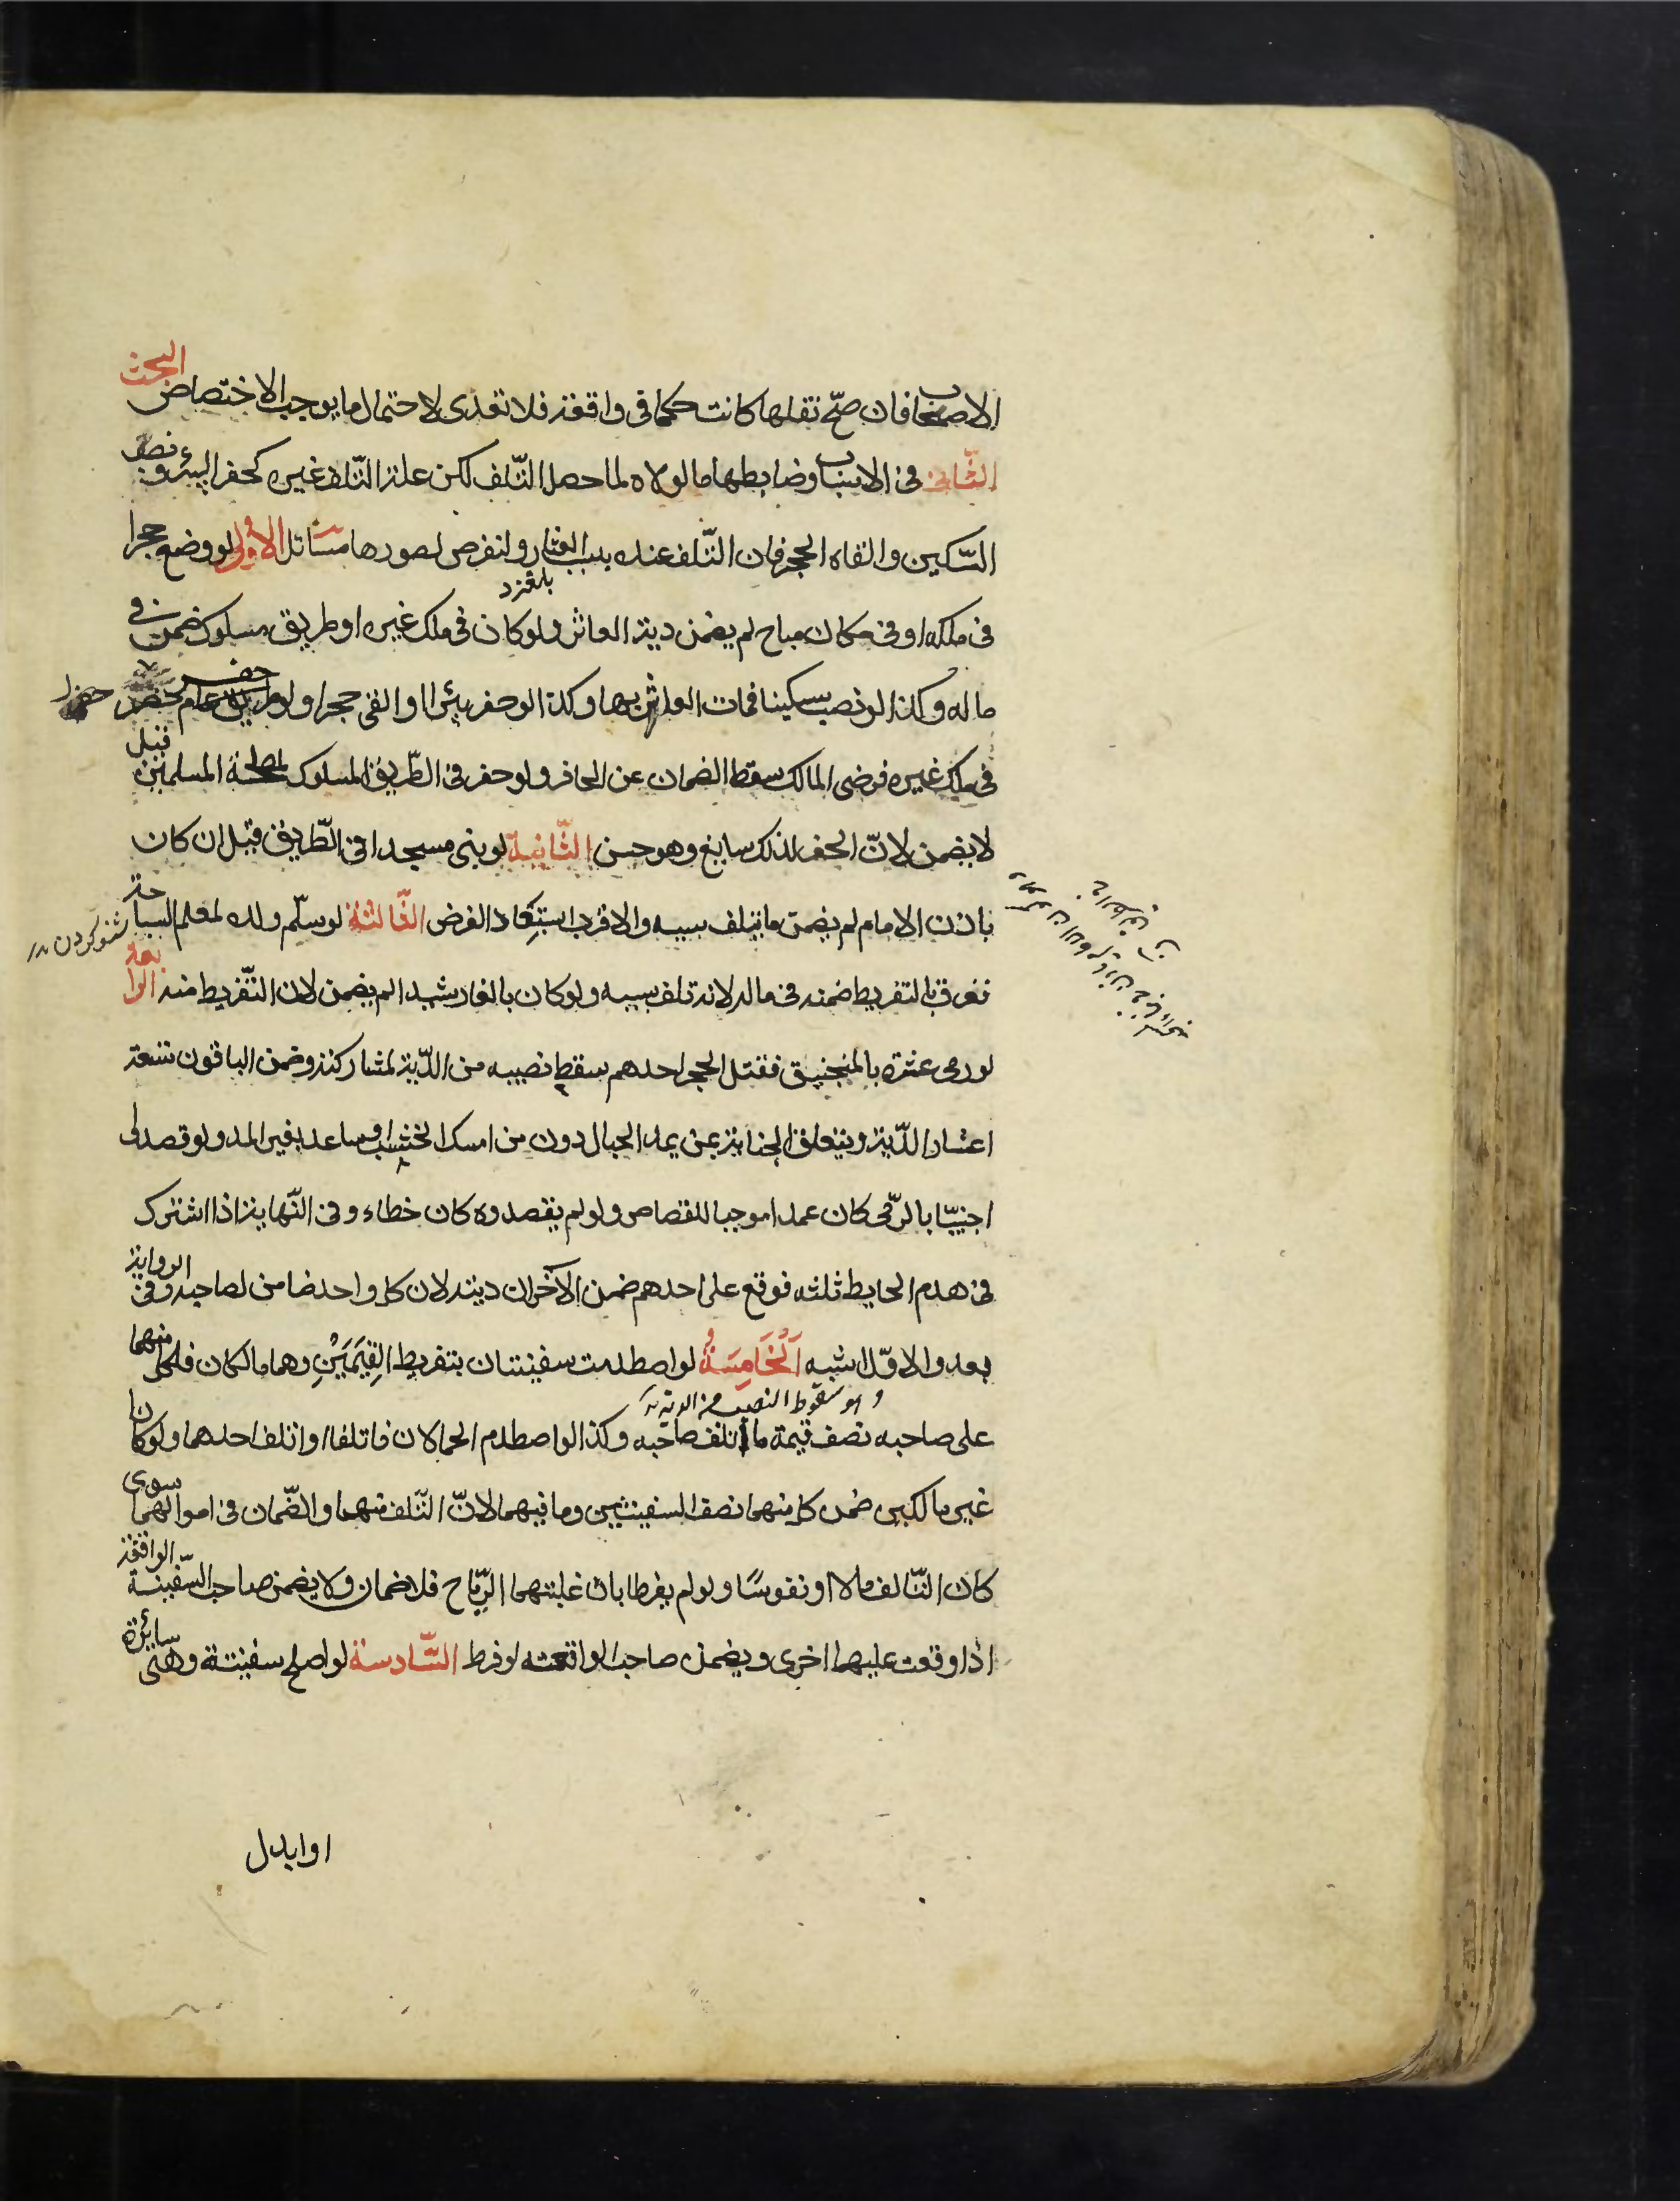 الاصحاب فان صحّ نقلها كانت حكما فى واقعة فلا تعدى لاحتمال ما يوجب الاختصاص البحث
الثّانى فى الاسباب وضابطها ما لولاه لما حصل التّلف لكن علة التّلف غيره كحفر البئر ونصب
السّكين والقاء الحجر فان التّلف عنده بسبب العثار ولنفرض لصورها مسائل الاولى لو وضع حجرا
فى ملكه او فى مكان مباح لم يضمن دية العاثر ولو كان فى ملك غيره او طريق مسلوك ضمن فى
ماله وكذا لو نصب سكينا فمات العاثر بها وكذا لو حفر بئرا او القى حجرا ولو حفر
فى ملك غيره فرضى المالك سقط الضمان عن الحافر ولو حفر فى الطّريق المسلوك لمصلحة المسلمين قيل
لا يضمن لانّ الحفر لذلك سايغ وهو حسن الثّانية لو بنى مسجدا فى الطّريق قيل ان كان
باذن الامام لم يضمن ما يتلف بسببه والاقرب استبعاد الفرض الثّالثة لو سلّم ولده لمعلم السباحة
فغرق بالتفريط ضمنه فى ماله لانه تلف بسببه ولو كان بالغا رشيدا لم يضمن لان التّفريط منه الرابعة
لو رمى عشرة بالمنجنيق فقتل الحجر احدهم سقط نصيبه من الدّية لمشاركته وضمن الباقون تسعة
اعشار الدّية ويتعلق الجناية بمن يمد الحبال دون من امسك الخشب او ساعد بغير المد ولو قصدوا
اجنبيّا بالرّمى كان عمدا موجبا للقصاص ولو لم يقصدوه كان خطاء وفى النّهاية اذا اشترك
فى هدم الحايط ثلثة فوقع على احدهم ضمن الآخران ديته لان كل واحد ضامن لصاحبه وفى الرواية
بعد والاوّل اشبه اَلْخَامِسَةُ لو اصطدمت سفينتان بتفريط القَيِّمَيْنِ وهما مالكان فلكل منهما
وهو سقوط النصيب من الدية
على صاحبه نصف قيمة ما اتلف صاحبه وكذا لو اصطدم الحمالان فاتلفا او اتلف احدهما ولو كانا
غير مالكين ضمن كل منهما نصف السفينتين وما فيهما لانّ التّلف منهما والضّمان فى اموالهما سوى
كان التّالف مالا او نفوسًا ولو لم يفرطا بان غلبتهما الرّياح فلا ضمان ولا يضمن صاحب السّفينة الواقفة
اذا وقعت عليها اخرى ويضمن صاحب الواقعة لو فرط السّادسة لو اصلح سفينته وهى سائرة
او ابدل